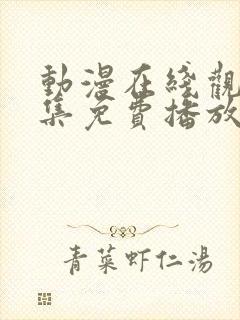 動漫在綫觀
集免費播放
青菜虾仁湯